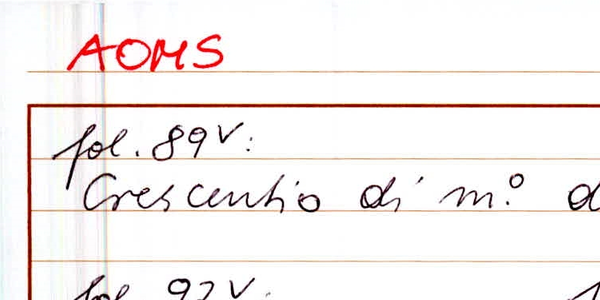 AOMS
fol. 89v:
Crescentio di m.º
fol. 92v: